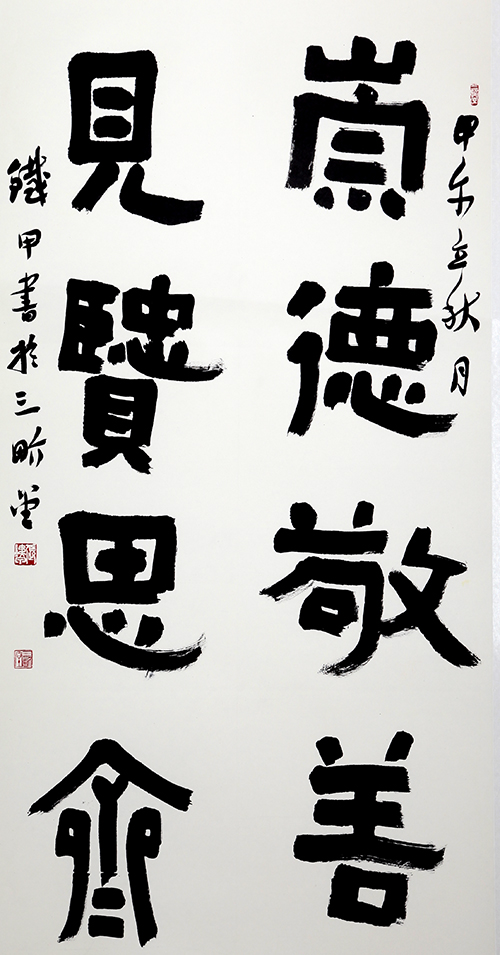 甲午立秋月
崇德敬善
見賢思齊
鐵甲書於三畝堂